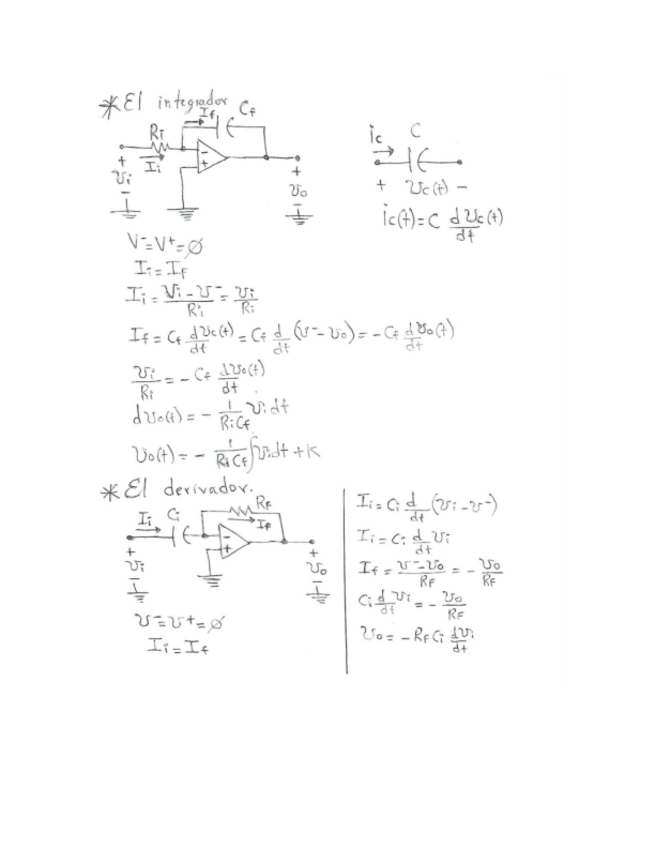 *El integrador
If Cf
Ri
Ii
+ Vi -
- +
+ Vo -
ic C
+ Vc(t) -
ic(t) = C dVc(t)/dt
V⁻=V⁺=Ø
Ii = If
Ii = (Vi - V⁻)/Ri = Vi/Ri
If = Cf dVc(t)/dt = Cf d/dt (V⁻ - Vo) = -Cf dVo(t)/dt
Vi/Ri = - Cf dVo(t)/dt
dVo(t) = - 1/(RiCf) Vi dt
Vo(t) = - 1/(RiCf) ∫Vidt + K
*El derivador.
RF
Ii Ci
If
- +
+ Vi -
+ Vo -
V⁻=V⁺=Ø
Ii = If
Ii = Ci d/dt (Vi - V⁻)
Ii = Ci d/dt Vi
If = (V⁻ - Vo)/RF = - Vo/RF
Ci d/dt Vi = - Vo/RF
Vo = - RF Ci dVi/dt